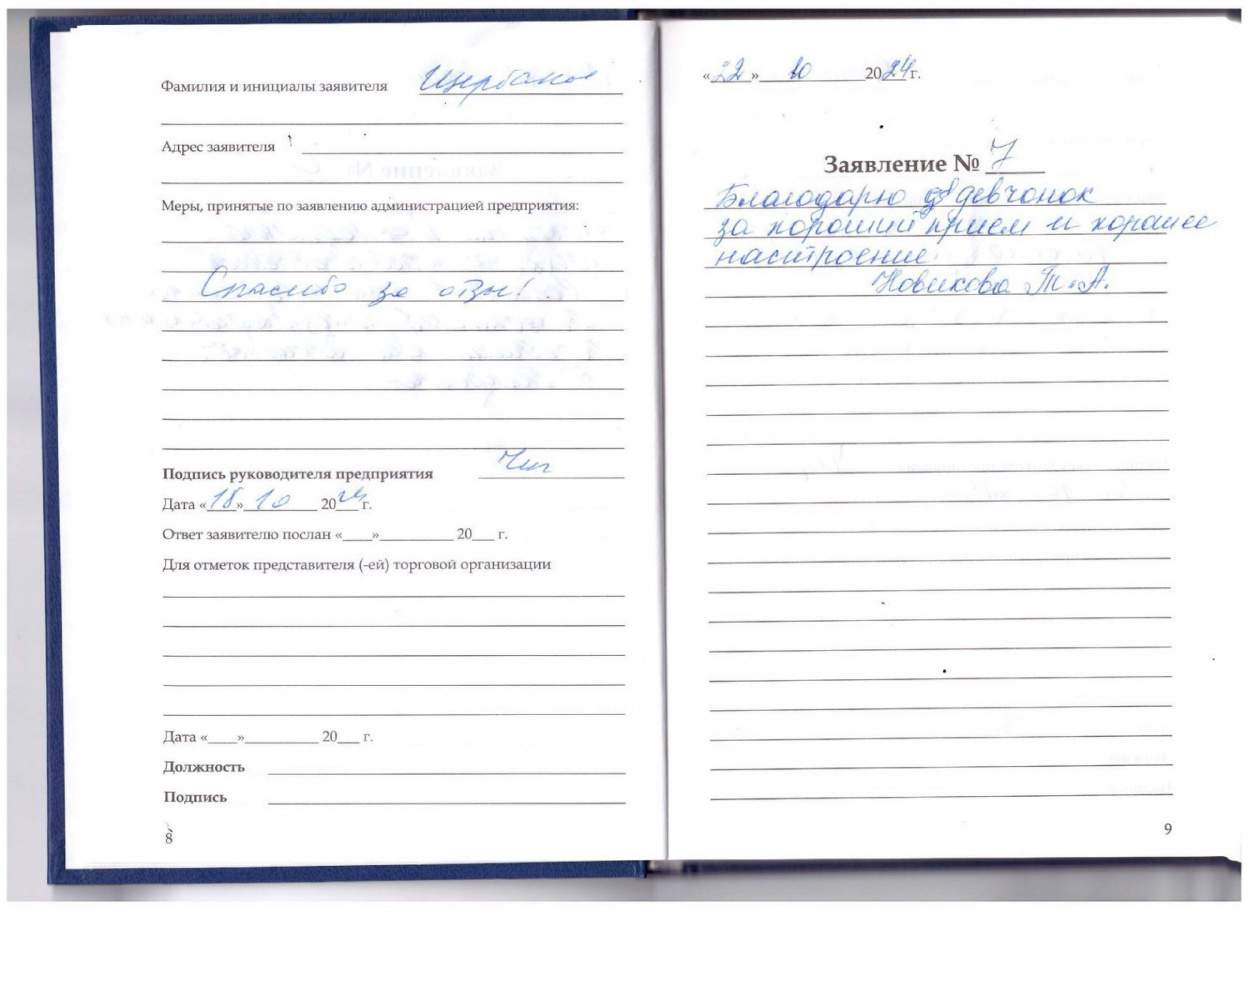 Фамилия и инициалы заявителя Щербаков
Адрес заявителя
Меры, принятые по заявлению администрацией предприятия:
Спасибо за отзыв!
Подпись руководителя предприятия
Дата «18» 10 2024 г.
Ответ заявителю послан «____»__________ 20___ г.
Для отметок представителя (-ей) торговой организации
Дата «____»__________ 20___ г.
Должность
Подпись
8
«22» 10 2024 г.
Заявление № 7
Благодарю девчонок
за хороший прием и хорошее
настроение
Новикова Т.А.
9